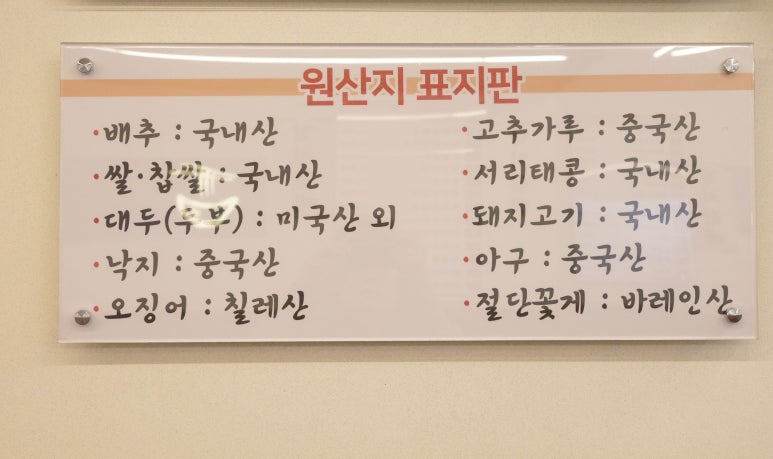 원산지 표지판
·배추 : 국내산
·쌀·찹쌀 : 국내산
·대두(두부) : 미국산 외
·낙지 : 중국산
·오징어 : 칠레산
·고추가루 : 중국산
·서리태콩 : 국내산
·돼지고기 : 국내산
·아구 : 중국산
·절단꽃게 : 바레인산